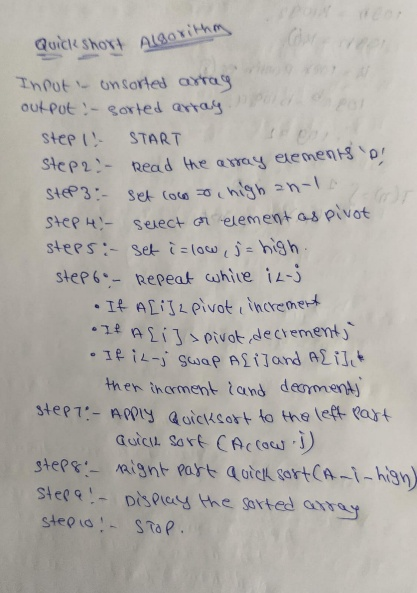 Quickshort Algorithm
Input :- unsorted array
output :- sorted array
step 1 :- START
step 2 :- Read the array elements 'n'
step 3 :- set low = 0, high = n-1
step 4 :- select an element as pivot
step 5 :- set i = low, j = high.
step 6 :- Repeat while i <- j
• If A[i] < pivot, increment
• If A[i] > pivot, decrement j
• If i <- j swap A[i] and A[i],
then incrment i and decrment j
step 7 :- APPLY Quicksort to the left part
Quick sort (A, low, j)
step 8 :- Right part Quick sort (A - i - high)
step 9 :- Display the sorted array
step 10 :- STOP.